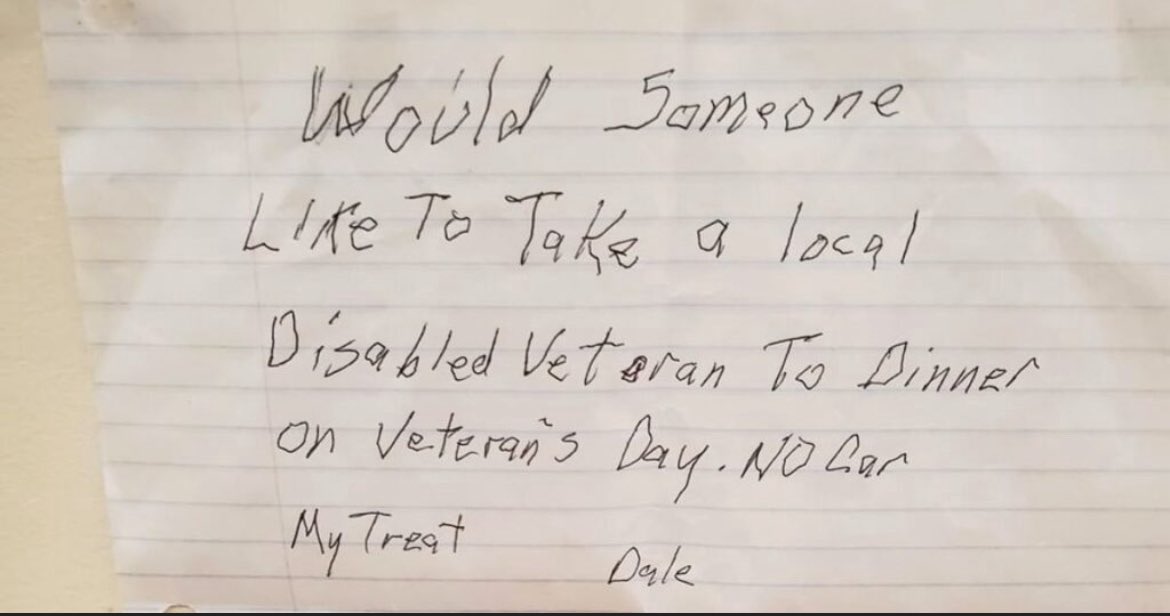 Would Someone
Like To Take a local
Disabled Veteran To Dinner
on Veteran's Day. NO Car
My Treat
Dale